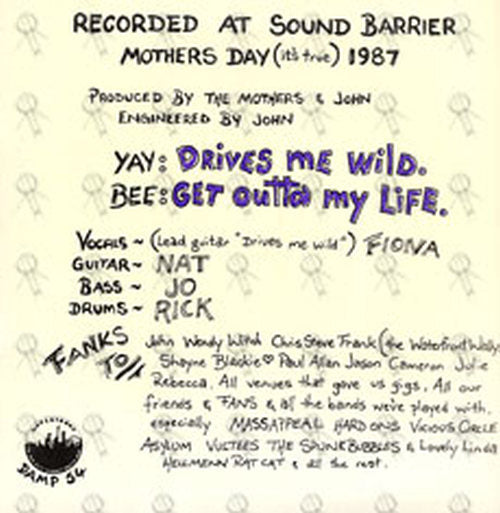 RECORDED AT SOUND BARRIER
MOTHERS DAY (it's true) 1987
PRODUCED BY THE MOTHERS & JOHN
ENGINEERED BY JOHN
YAY: DRIVES ME WILD.
BEE: GET OUTTA MY LIFE.
VOCALS ~ (Lead guitar "Drives me wild") FIONA
GUITAR ~ NAT
BASS ~ JO
DRUMS ~ RICK
FANKS TO//
John Wendy Witch Chris Steve Frank (the Waterfront Wollys
Shayne Blackie ♡ Paul Allan Jason Cameron Julie
Rebecca. All venues that gave us gigs. All our
friends & FANS & all the bands we've played with.
especially MASSAPPEAL HARD ONS VICIOUS CIRCLE
ASYLUM VULTEES THE SPUNKBUBBLES & Lovely Linda
HELLMENN RATCAT & all the rest.
DAMP 54